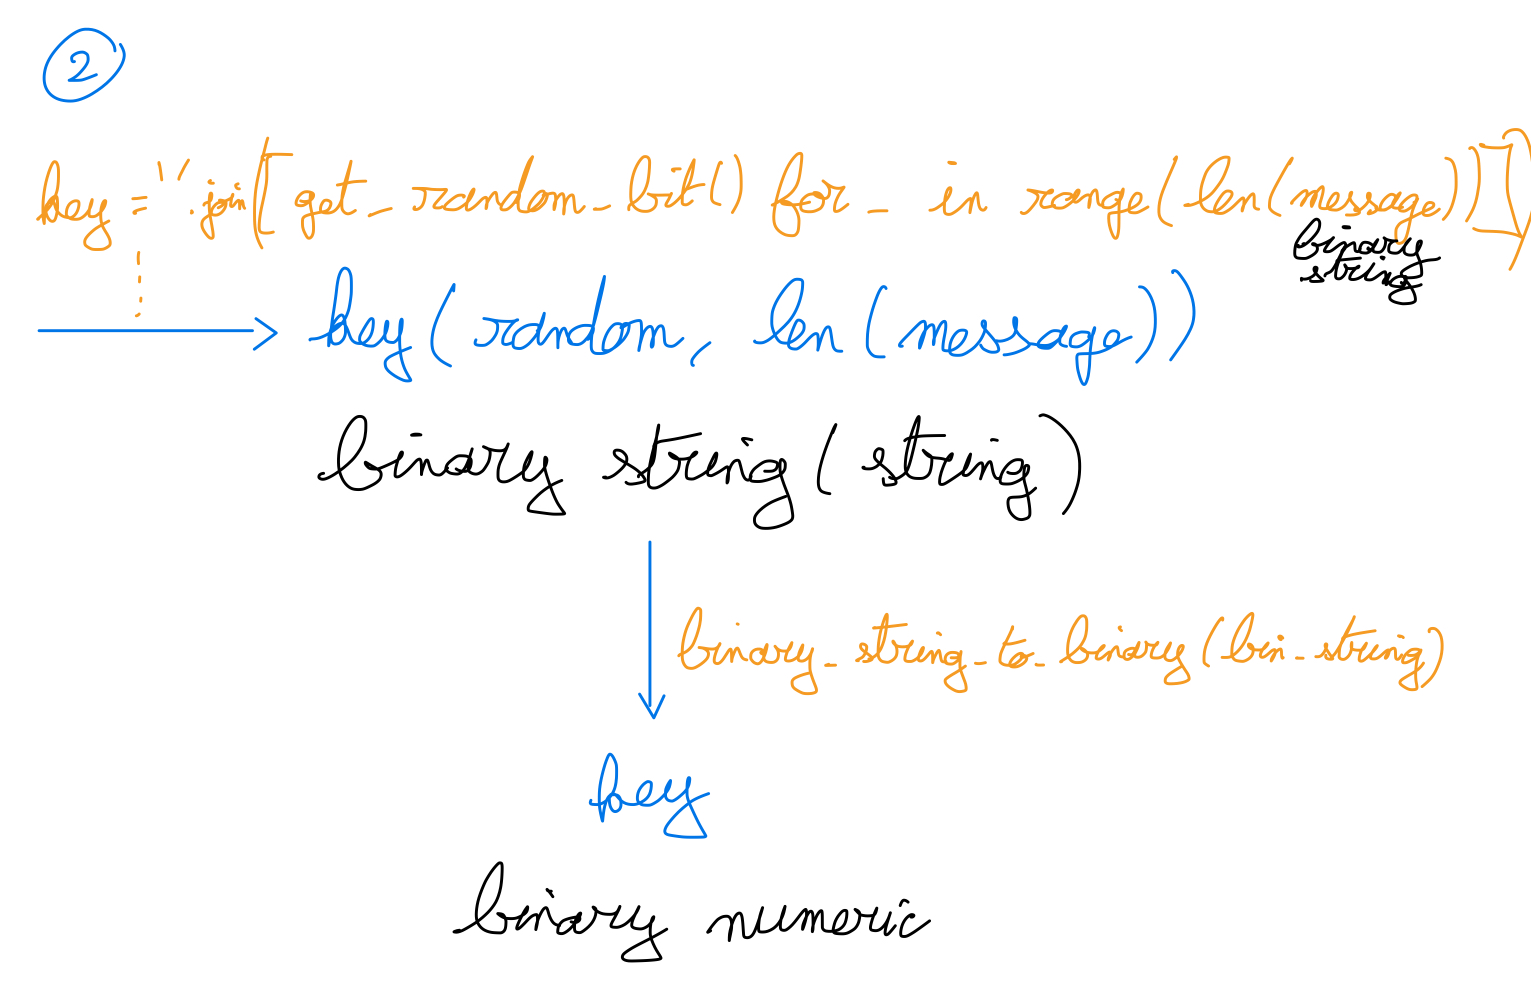 2
key = ''.join([get_random_bit() for _ in range(len(message))])
binary
string
key(random, len(message))
binary string(string)
binary_string_to_binary(bin_string)
key
binary numeric